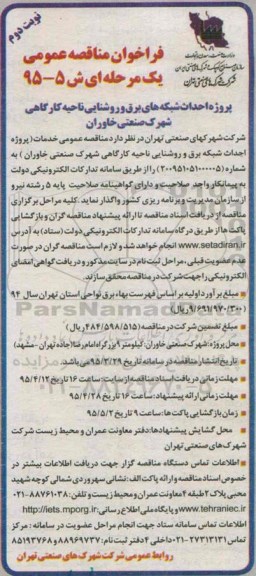 نوبت دوم
فراخوان مناقصه عمومی
یک مرحله ای ش ۵-۹۵
پروژه احداث شبکه های برق و روشنایی ناحیه کارگاهی
شهرک صنعتی خاوران
شرکت شهرکهای صنعتی تهران در نظر دارد مناقصه عمومی خدمات (پروژه
احداث شبکه برق و روشنایی ناحیه کارگاهی شهرک صنعتی خاوران) به
شماره (۲۰۰۹۵۱۰۵۱۰۰۰۰۰۵) را از طریق سامانه تدارکات الکترونیکی دولت
به پیمانکار واجد صلاحیت و دارای گواهینامه صلاحیت پایه ۵ رشته نیرو
از سازمان مدیریت و برنامه ریزی کشور واگذار نماید. کلیه مراحل برگزاری
مناقصه از دریافت اسناد مناقصه تا ارائه پیشنهاد مناقصه گران و بازگشایی
پاکت ها از طریق درگاه سامانه تدارکات الکترونیکی دولت (ستاد) به آدرس
www.setadiran.ir انجام خواهد شد و لازم است مناقصه گران در صورت
عدم عضویت قبلی، مراحل ثبت نام در سایت مذکور و دریافت گواهی امضای
الکترونیکی را جهت شرکت در مناقصه محقق سازند.
مبلغ برآورد اولیه بر اساس فهرست بهاء برق نواحی استان تهران سال ۹۴
مبلغ تضمین شرکت در مناقصه (۴۸۴/۵۹۸/۵۱۵ ریال)
محل پروژه: شهرک صنعتی خاوران: کیلومتر ۹ بزرگراه امام رضا (جاده تهران - مشهد)
تاریخ انتشار مناقصه در سامانه تاریخ ۹۵/۳/۲۹ می باشد.
مهلت زمانی دریافت اسناد مناقصه از سایت: ساعت ۱۶ تاریخ ۹۵/۴/۱۲
مهلت زمانی ارائه پیشنهاد: ساعت ۱۶ تاریخ ۹۵/۴/۲۸
زمان بازگشایی پاکت ها: ساعت ۹ تاریخ ۹۵/۵/۲
محل گشایش پیشنهادها: دفتر معاونت عمران و محیط زیست شرکت
شهرک های صنعتی تهران
اطلاعات تماس دستگاه مناقصه گزار جهت دریافت اطلاعات بیشتر در
خصوص اسناد مناقصه و ارائه پاکت الف: نشانی سهروردی شمالی کوچه شهید
محبی پلاک ۲ طبقه ۴ معاونت عمران و محیط زیست و تلفن: ۰۲۱-۸۸۷۶۱۰۳۸
www.tehraniec.ir و پایگاه ملی اطلاع رسانی: http://iets.mporg.ir
اطلاعات تماس سامانه ستاد جهت انجام مراحل عضویت در سامانه: مرکز
تماس ۲۷۳۱۳۱۳۱-۰۲۱ داخلی ۴ دفتر ثبت نام: ۸۸۹۶۹۷۳۷ و ۸۵۱۹۳۷۶۸
روابط عمومی شرکت شهرک های صنعتی تهران